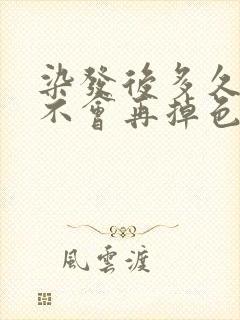 染發後多久
不會再掉色
風雲渡